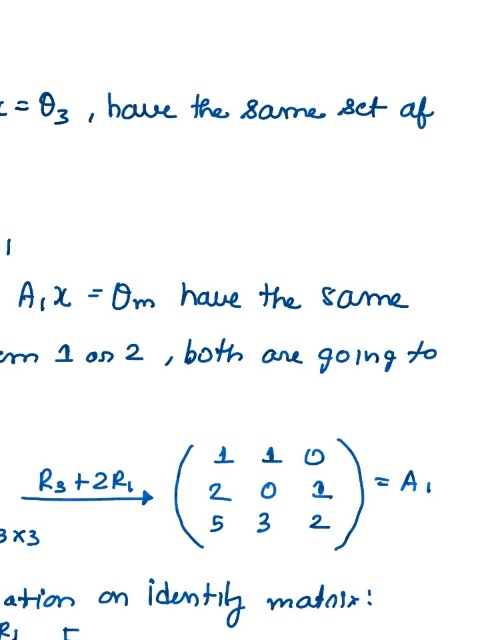 x = θ₃ , have the same set of
1
A₁x = θm have the same
em 1 or 2 , both are going to
R₃ + 2R₁ → ( 1 1 0
2 0 1
5 3 2 ) = A₁
3×3
ation on identity matrix :
R₁ [